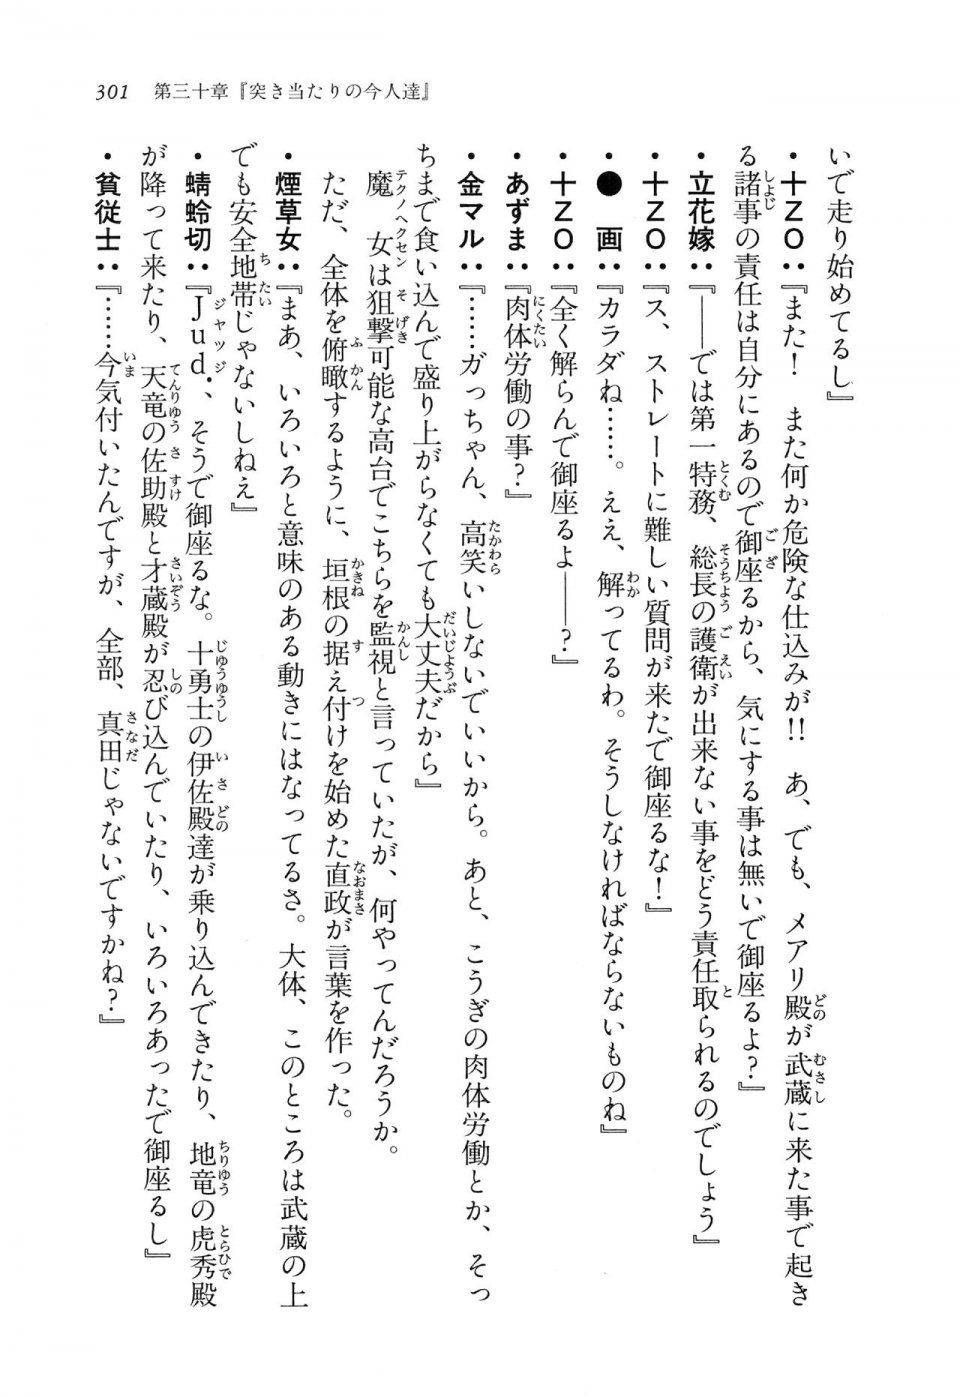 301 第三十章『突き当たりの今人達』
いで走り始めてるし』
・十ZO：『また！　また何か危険な仕込みが!!　あ、でも、メアリ殿が武蔵に来た事で起き
る諸事の責任は自分にあるので御座るから、気にする事は無いで御座るよ？』
・立花嫁：『──では第一特務、総長の護衛が出来ない事をどう責任取られるのでしょう』
・十ZO：『ス、ストレートに難しい質問が来たで御座るな！』
・●　画：『カラダね……。ええ、解ってるわ。そうしなければならないものね』
・十ZO：『全く解らんで御座るよ──？』
・あずま：『肉体労働の事？』
・金マル：『……ガっちゃん、高笑いしないでいいから。あと、こうぎの肉体労働とか、そっ
ちまで食い込んで盛り上がらなくても大丈夫だから』
　魔女は狙撃可能な高台でこちらを監視と言っていたが、何やってんだろうか。
　ただ、全体を俯瞰するように、垣根の据え付けを始めた直政が言葉を作った。
・煙草女：『まあ、いろいろと意味のある動きにはなってるさ。大体、このところは武蔵の上
でも安全地帯じゃないしねえ』
・蜻蛉切：『Jud.、そうで御座るな。十勇士の伊佐殿達が乗り込んできたり、地竜の虎秀殿
が降って来たり、天竜の佐助殿と才蔵殿が忍び込んでいたり、いろいろあったで御座るし』
・貧従士：『……今気付いたんですが、全部、真田じゃないですかね？』